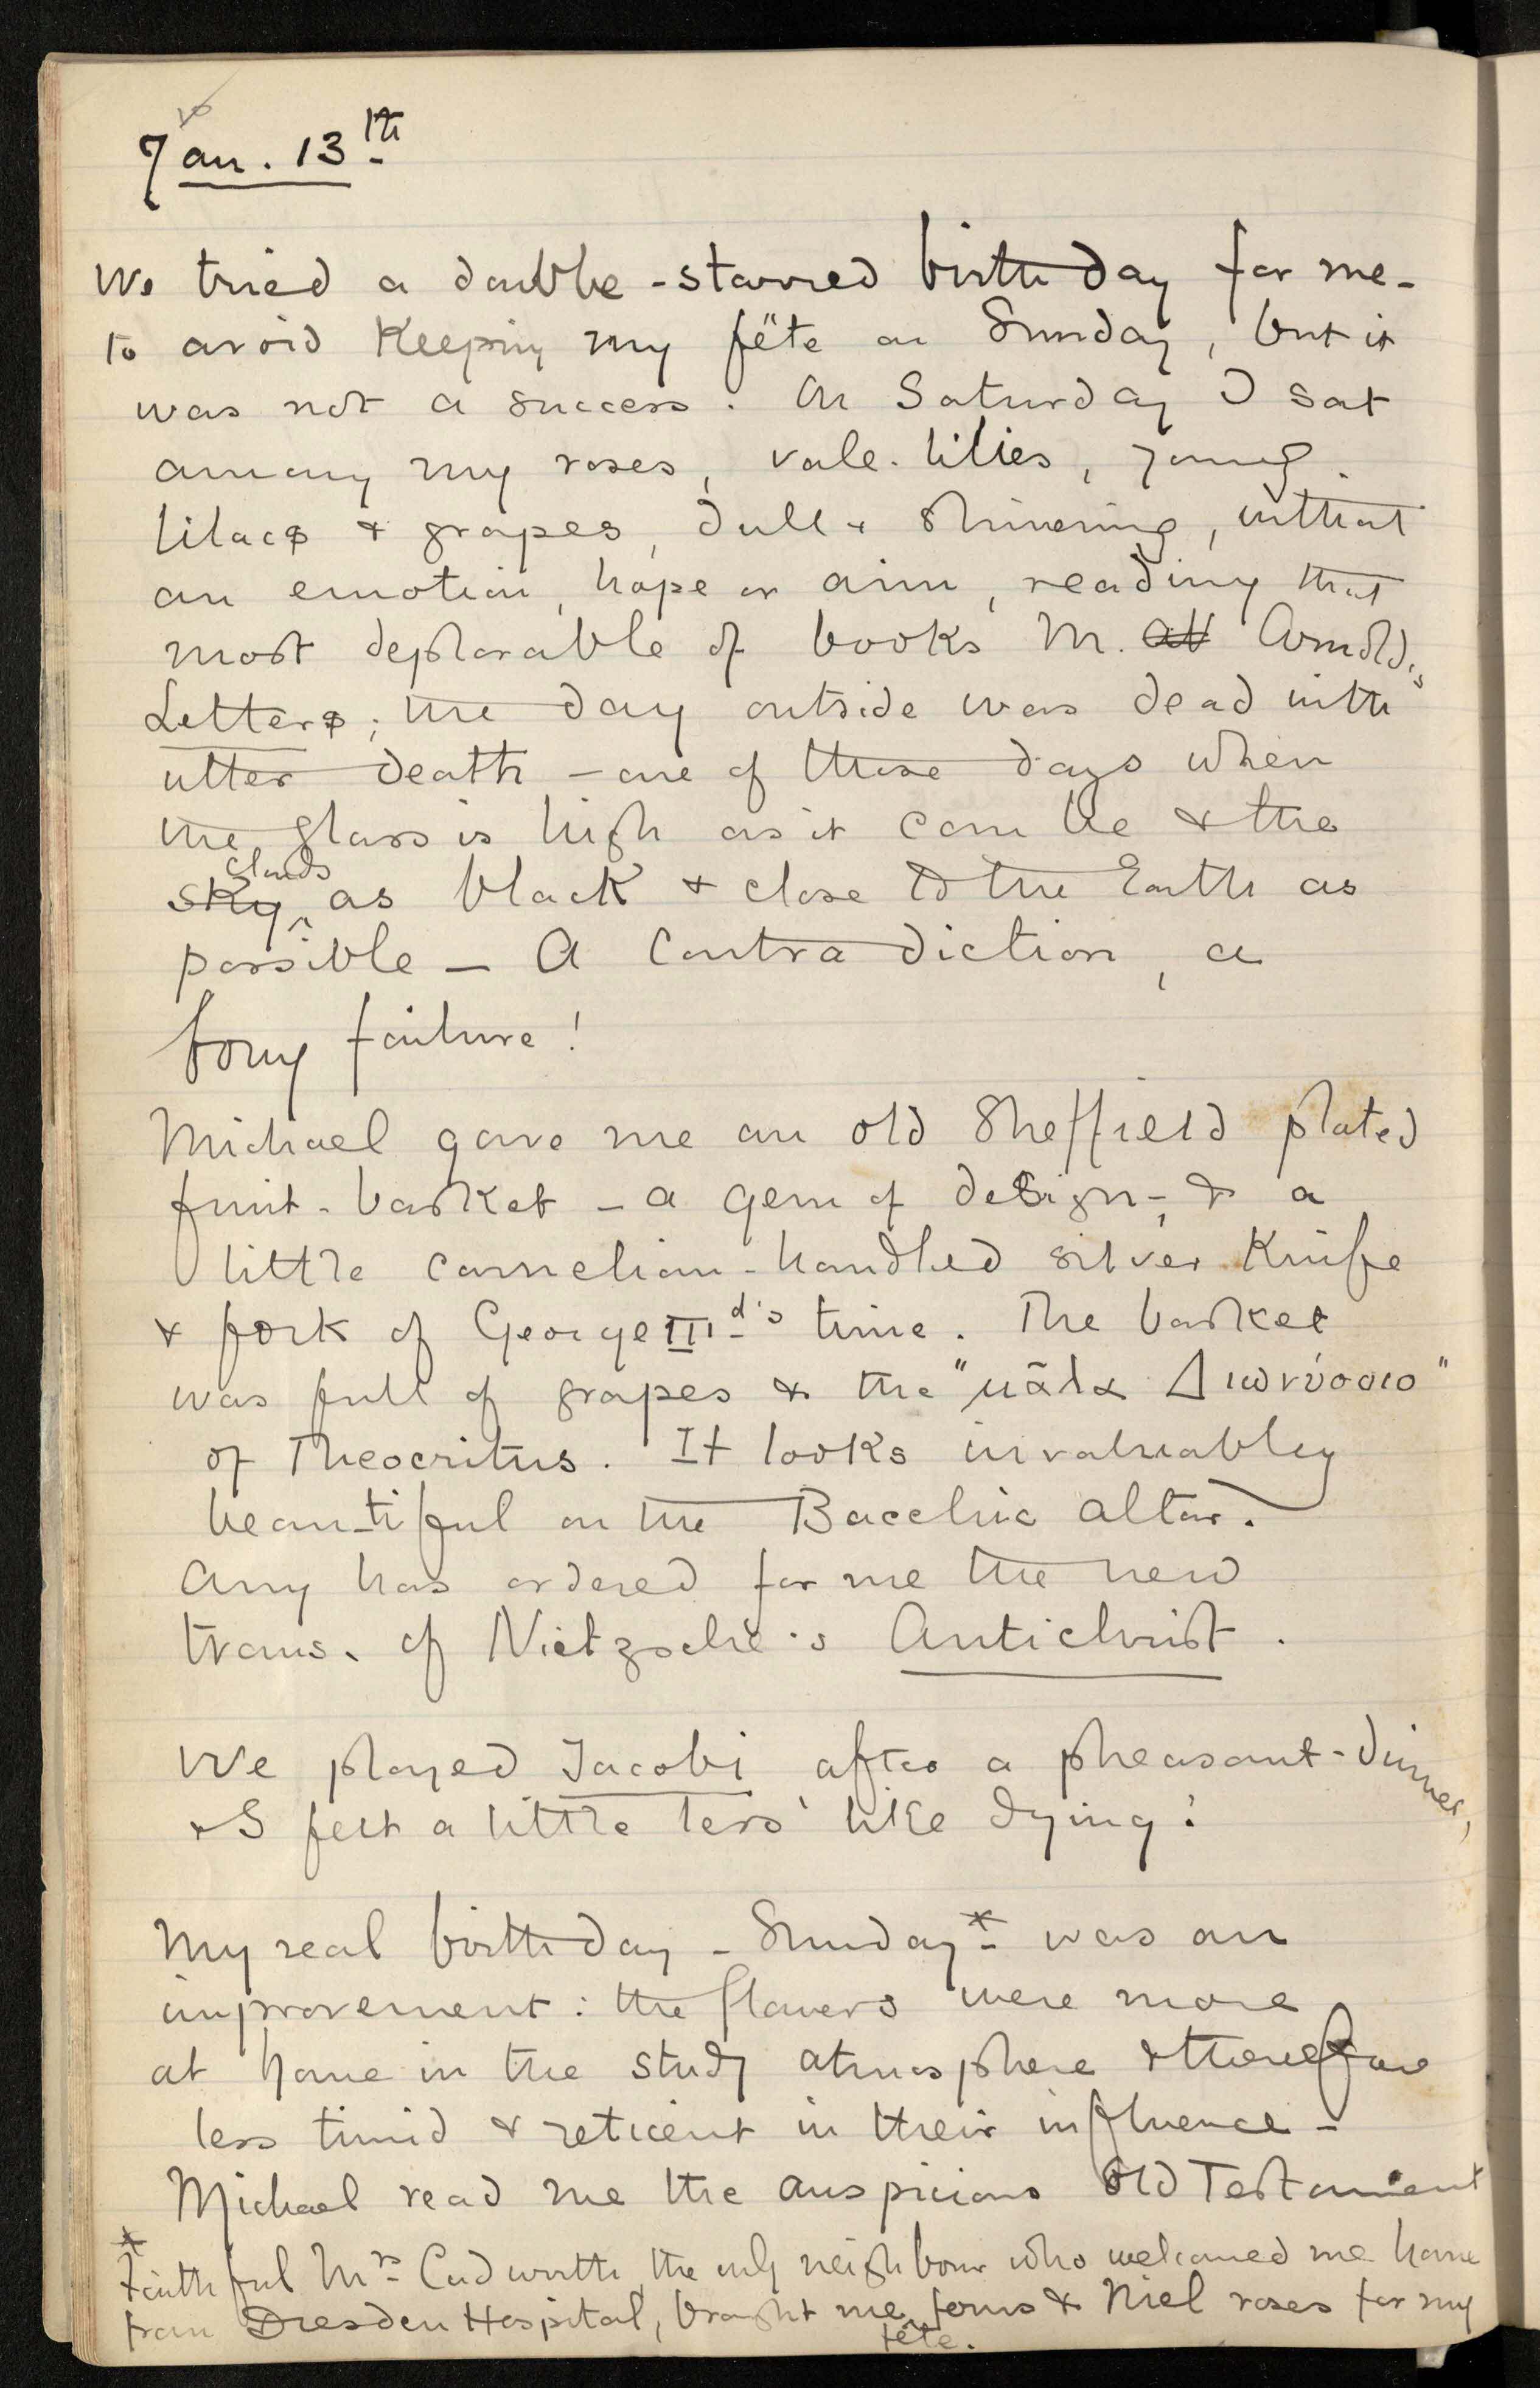 Jan. 13th
We tried a double-starred birthday for me-
to avoid Keeping my fête on Sunday, but it
was not a success. On Saturday I sat
among my roses, vale-lilies, young
lilacs & grapes, dull & shivering, without
an emotion, hope or aim, reading that
most deplorable of books M. Arnold's
Letters; the day outside was dead with
utter death - one of those days when
the glass is high as it can be & the
sky clouds as black & close to the Earth as
possible - A Contradiction, a
failure!
Michael gave me an old Sheffield plated
fruit-basket - a gem of design - & a
little cornelian-handled silver Knife
& fork of George IIId's time. The basket
was full of grapes & the "μᾶλα Διωνύσοιο"
of Theocritus. It looks invaluably
beautiful on the Bacchic altar.
Amy has ordered for me the new
trans. of Nietzsche's Antichrist.
We played Jacobi after a pheasant-dinner,
& I felt a little less like dying!
My real birthday - Sunday * - was an
improvement: the flowers were more
at home in the study atmosphere & therefore
less timid & reticent in their influence -
Michael read me the auspicious Old Testament
* Faithful Mrs Cudworth, the only neighbour who welcomed me home
from Dresden Hospital, brought me ferns & Niel roses for my
fête.